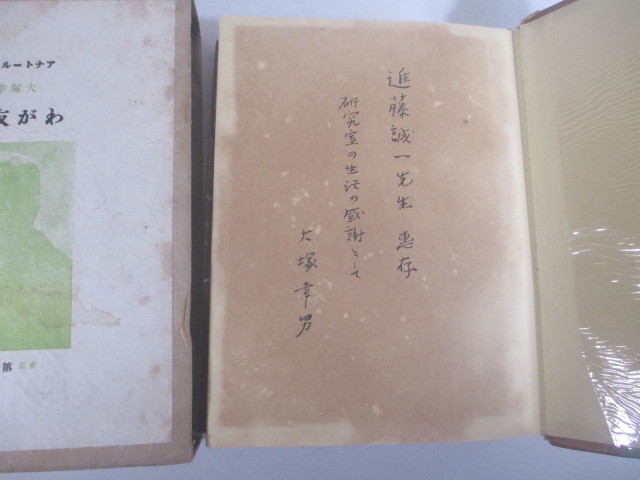 アナトール
大塚
わが友
進藤誠一先生 惠存
研究室の生活の感謝として
大塚幸男
第